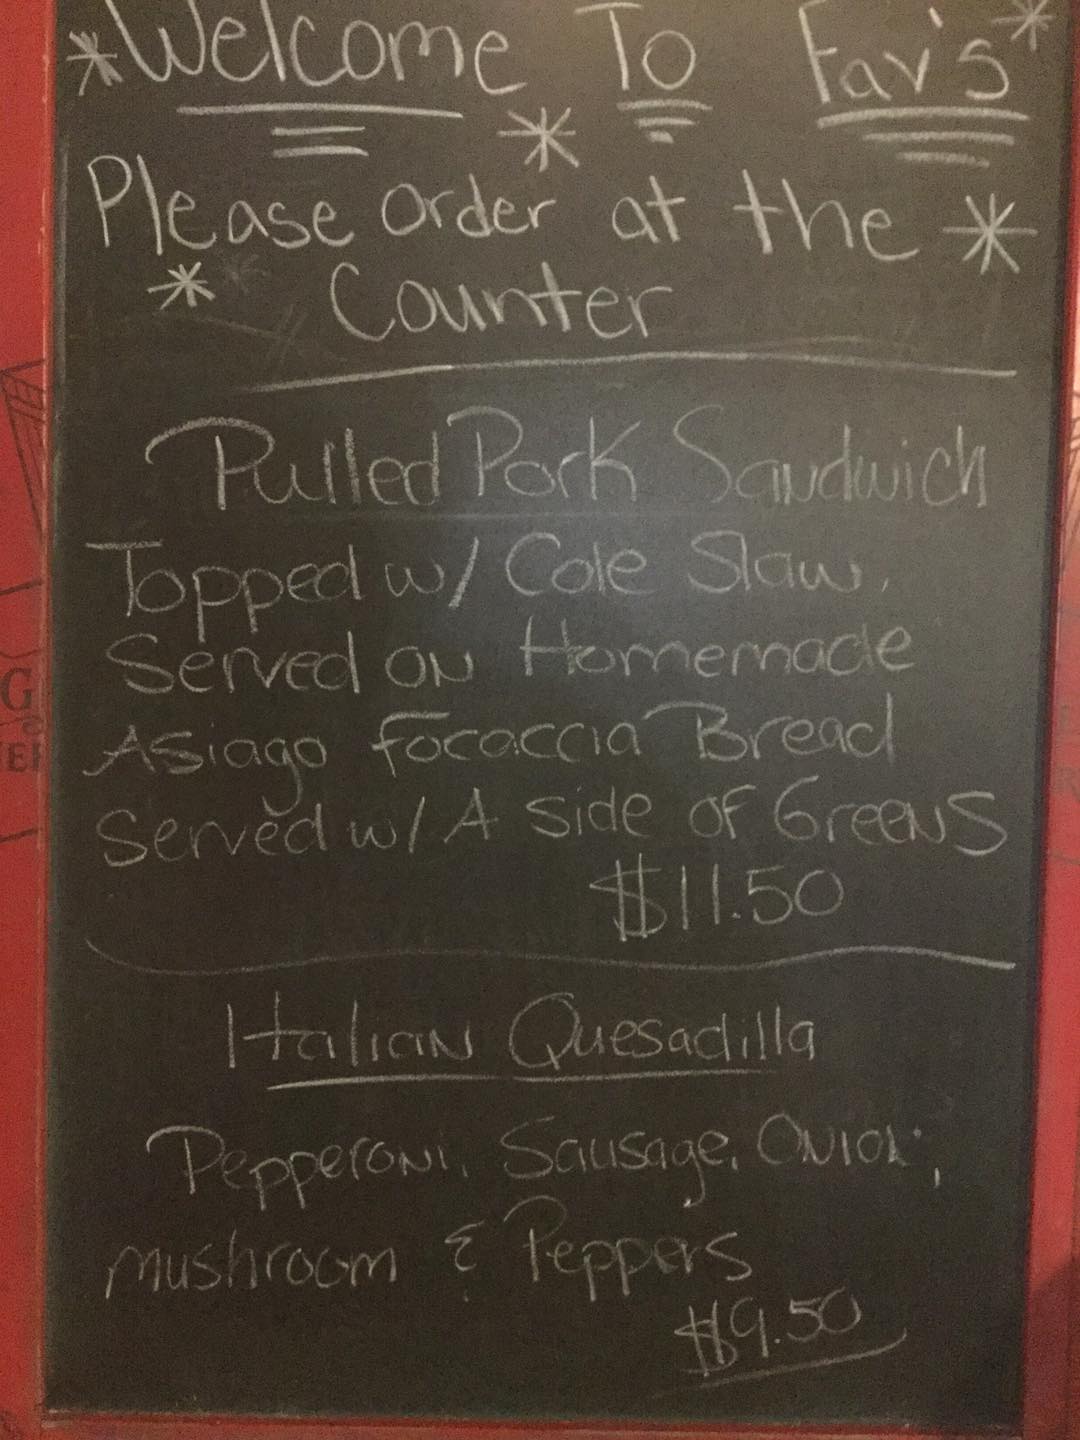 *Welcome To Fav's*
*
Please order at the *
* Counter
Pulled Pork Sandwich
Topped w/ Cole Slaw.
Served on Homemade
Asiago Focaccia Bread
Served w/ A side of Greens
$11.50
Italian Quesadilla
Pepperoni, Sausage, Onion,
mushroom & Peppers
$9.50
G